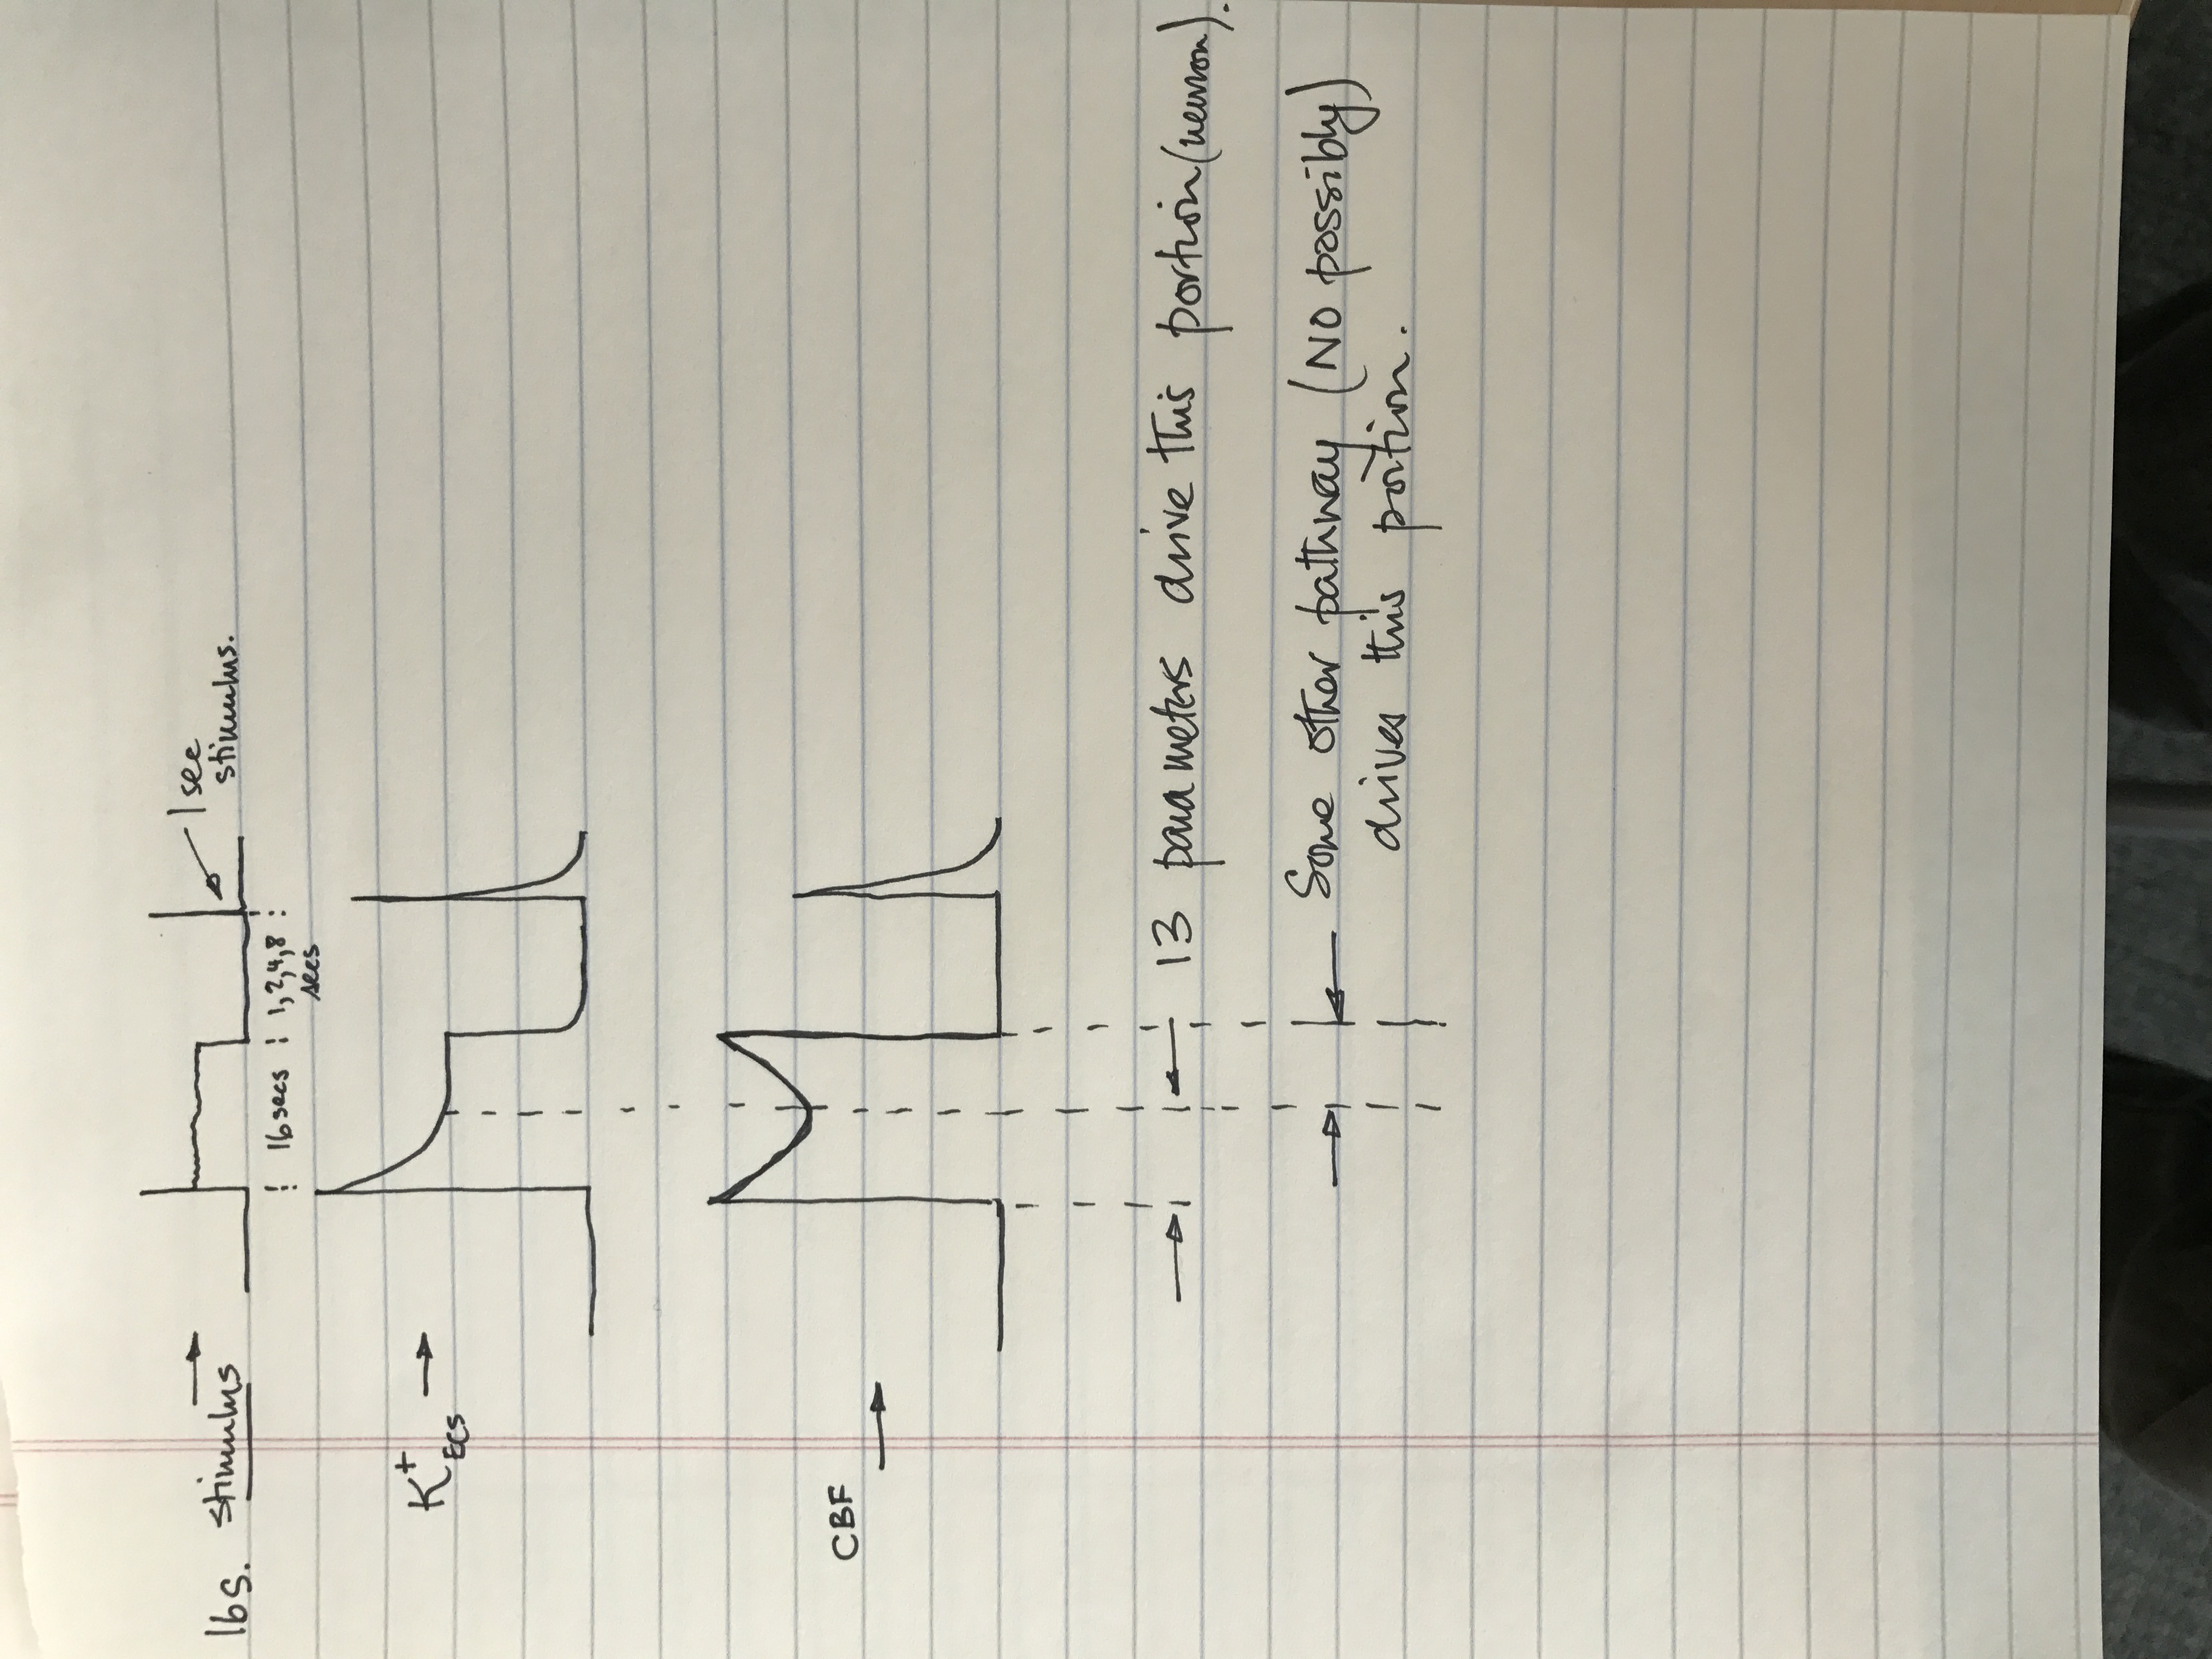 16s. stimulus
1 sec
stimulus.
16 secs
1,2,4,8
secs
K+ECS
CBF
13 parameters drive this portion (neuron).
Some other pathway (NO possibly)
drives this portion.